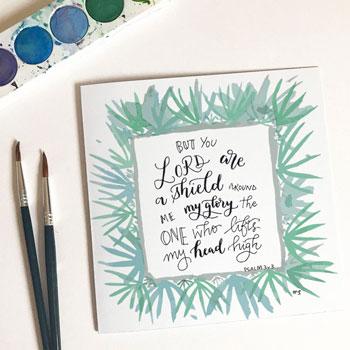 BUT YOU
LORD are
a shield AROUND
ME my glory the
ONE who lifts
my head high
PSALM 3:3